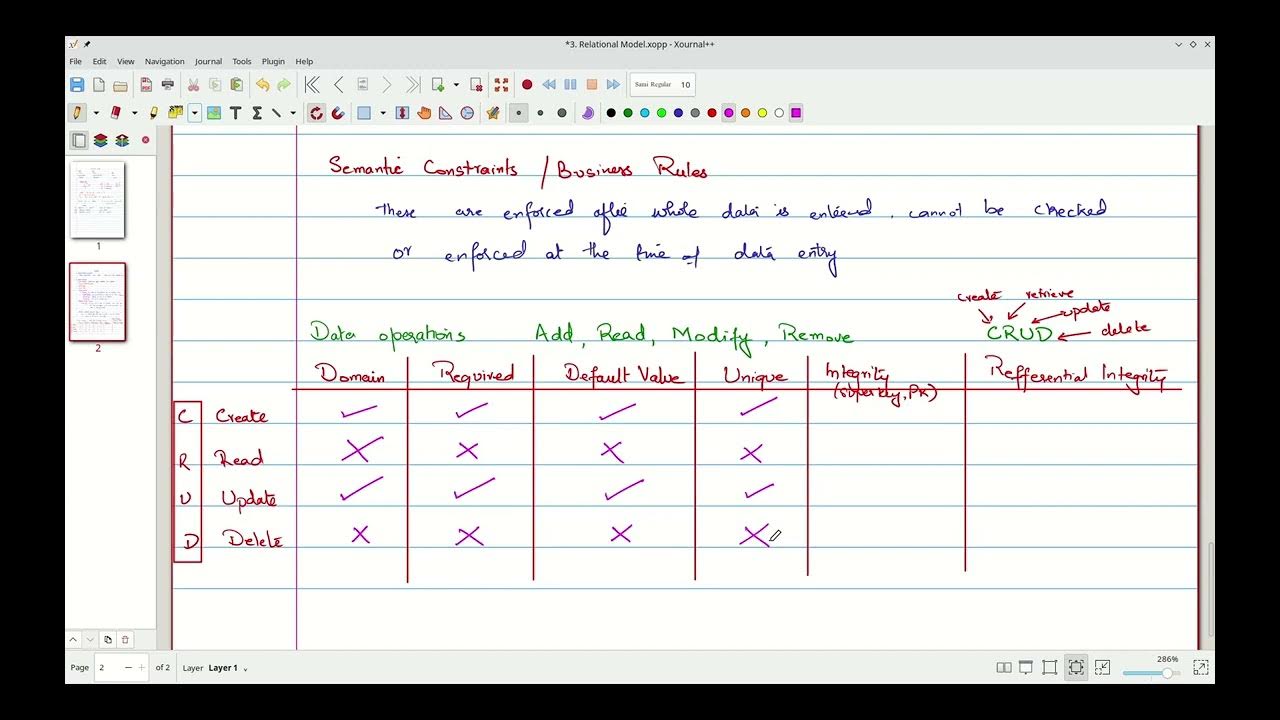 *3. Relational Model.xopp - Xournal++
File Edit View Navigation Journal Tools Plugin Help
Sami Regular 10
1
2
Semantic Constraints / Business Rules
These are enforced after whole data is entered, cannot be checked
or enforced at the time of data entry
create retrieve
update
Data operations Add, Read, Modify, Remove CRUD delete
Domain Required Default Value Unique Integrity Refferential Integrity
(superkey, PK)
C Create
R Read
U Update
D Delete
Page 2 of 2 Layer Layer 1 286%